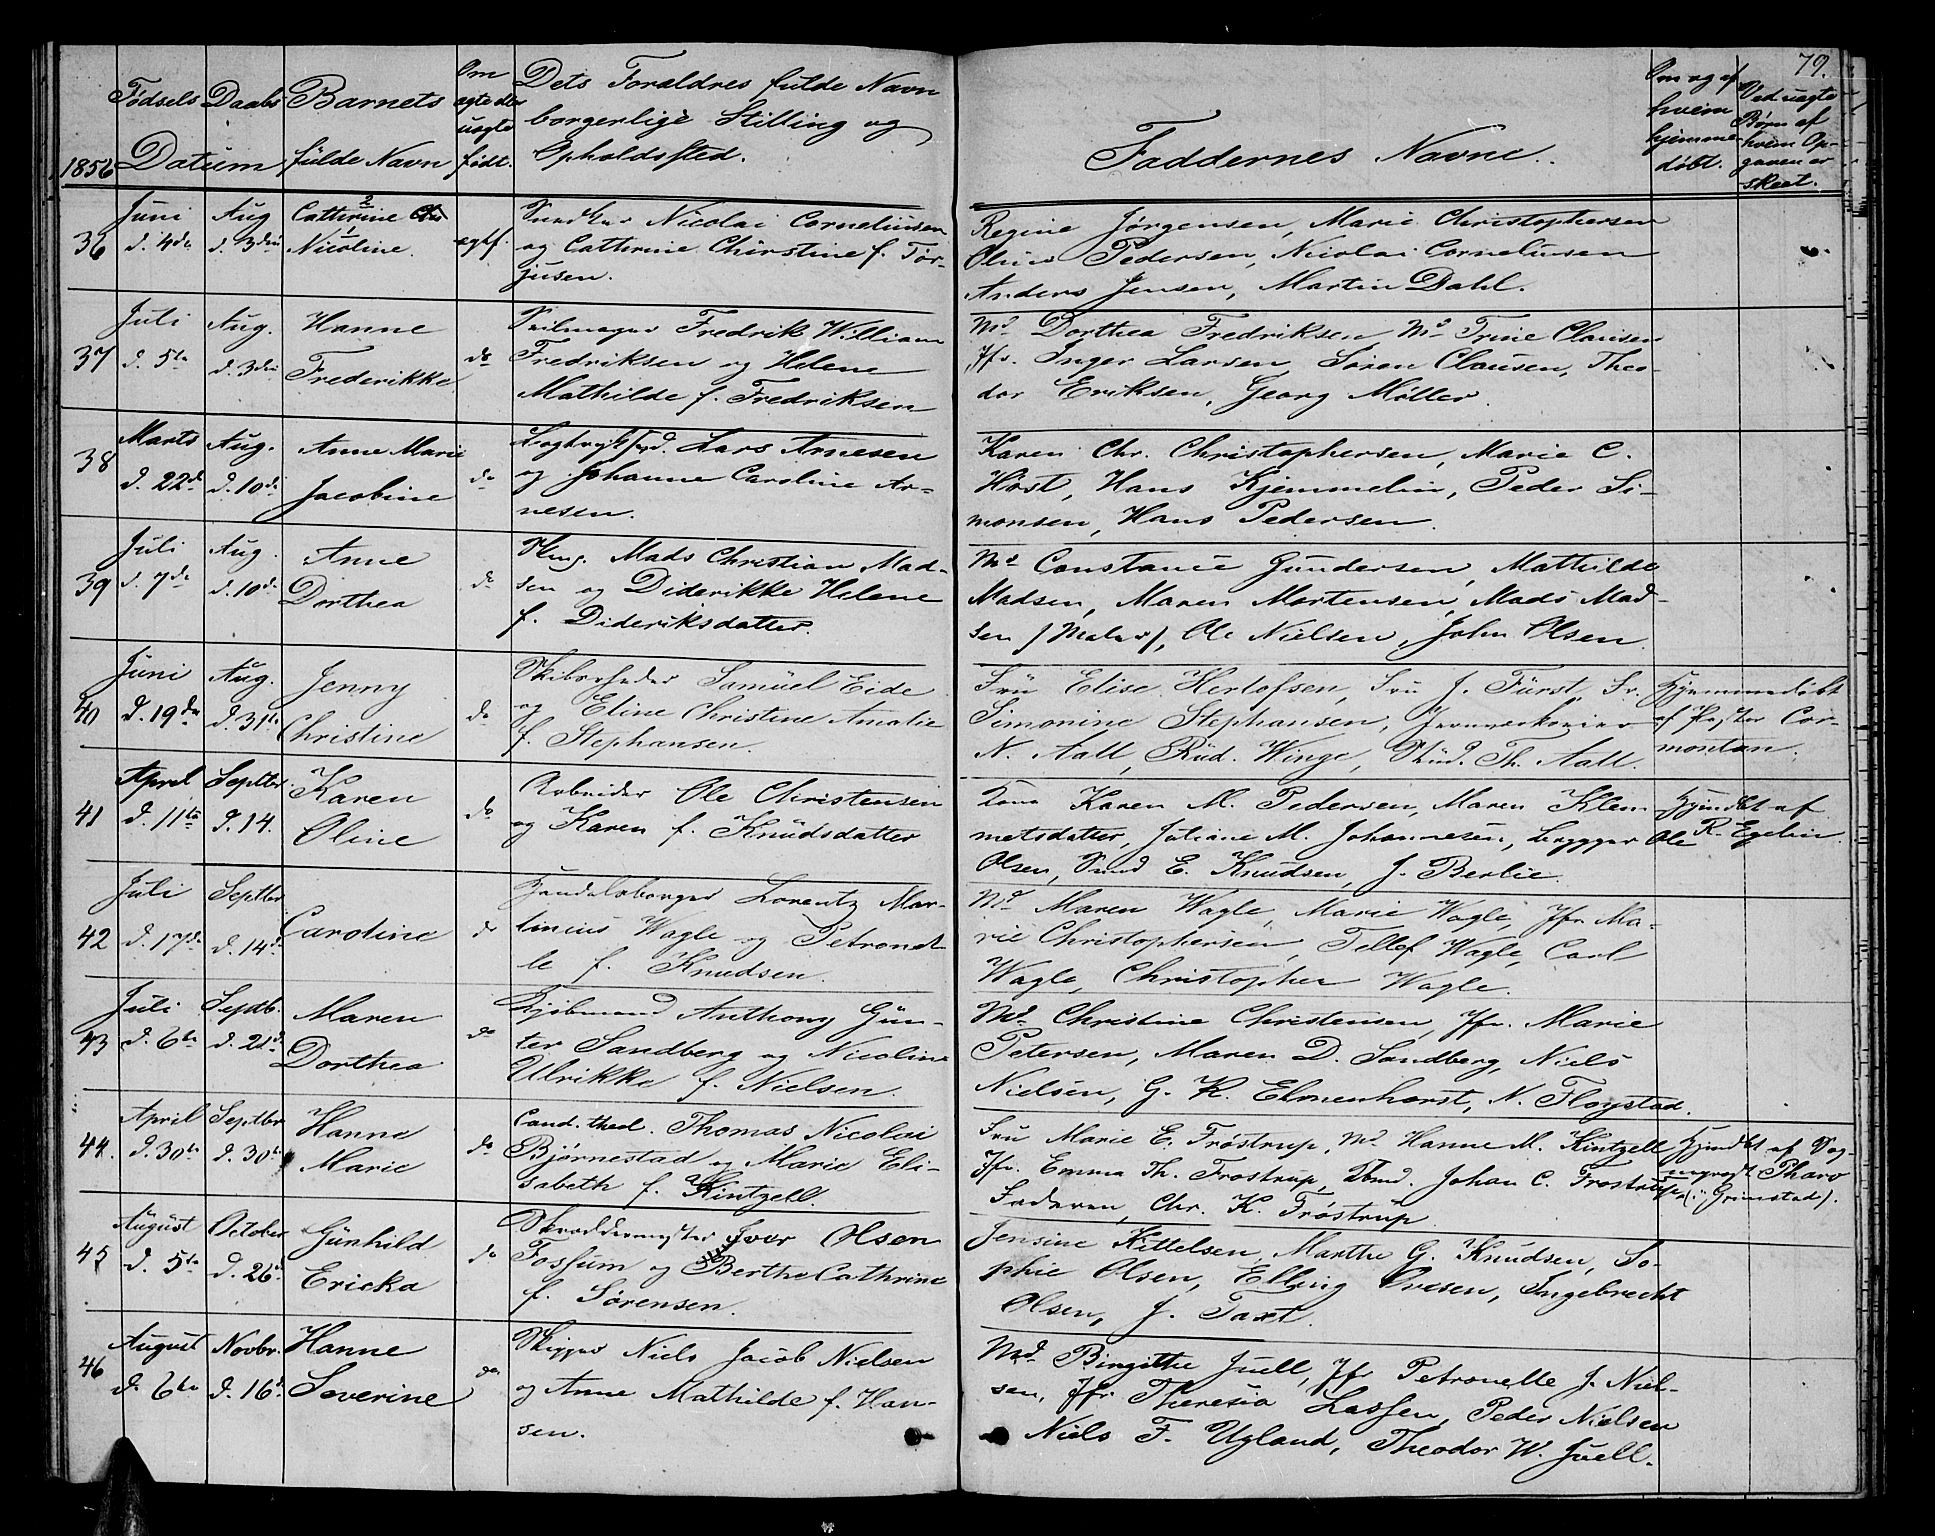 79.
1856
Fødsels Daabs
Datum
Barnets
fulde Navn
Om
ægte eller
uægte
født.
Dets Forældres fulde Navn
borgerlige Stilling og
Opholdssted.
Faddernes Navne.
Om og af
hvem
hjemme-
døbt.
Ved uægte
Børn af
hvem Op-
gaven er
skeet.
36
Juni
d. 4de
Aug
d. 3die
2
Cathrine
1
Nicoline.
ægtf.
Nicolai Corneliussen
og Cathrine Christine f. Tør-
jusen.
Regine Jørgensen, Marie Christophersen
Oline Pedersen, Nicolai Corneliussen
Anders Jensen, Martin Dahl.
37
Juli
d. 5te
Aug.
d. 3die
Hanne
Frederikke
do
Seilmager Fredrik William
Fredriksen og Helene
Mathilde f. Fredriksen
Md Dorthea Fredriksen, Md Trine Clausen
Jfr. Inger Larsen, Søren Clausen, Theo-
dor Eriksen, Georg Møller.
38
Marts
d. 22de
Aug.
d. 10de
Anne Marie
Jacobine
do
Lars Arnesen
og Johanne Caroline Ar-
nesen.
Karen Chr. Christophersen, Marie C.
Høst, Hans Kjemmelin, Peder Si-
monsen, Hans Pedersen.
39
Juli
d. 7de
Aug.
d. 10de
Anne
Dorthea
do
Mads Christian Mad-
sen og Diderikke Helene
f. Dideriksdatter.
Md Constance Gundersen, Mathilde
Madsen, Maren Mortensen, Mads Mad-
sen / Maler /, Ole Nielsen, John Olsen.
40
Juni
d. 19de
Aug.
d. 31te
Jenny
Christine
do
Skibsreder Samuel Eide
og Eline Christine Amalie
f. Stephansen.
Fru Elise Herlofsen, Fru J. Fürst, Fr.
Simonine Stephansen, Jernverkseier
N. Aall, Rüd. Winge, Stud. Th. Aall.
Hjemmedøbt
af Pastor Cor-
montan.
41
April
d. 11te
Septbr.
d. 14.
Karen
Oline
do
Arbeider Ole Christensen
og Karen f. Knudsdatter
Kone Karen M. Pedersen, Maren Klem-
metsdatter, Juliane M. Johannesen, Brygger Ole
Olsen, E. Knudsen, J. Berlie.
Hjmdbt af
R. Egelin
42
Juli
d. 17de
Septbr.
d. 14de
Caroline
do
Handelsborger Lorentz Mar-
tinius Wagle og Petronel-
le f. Knudsen.
Md Maren Wagle, Marie Wagle, Jfr Ma-
rie Christophersen, Tellef Wagle, Carl
Wagle, Christopher Wagle.
43
Juli
d. 6te
Septb.
d. 21de
Maren
Dorthea
do
Kjøbmand Anthony Gün-
ter Sandberg og Nicoline
Ulrikke f. Nielsen.
Md. Christine Christensen, Jfr. Marie
Petersen, Maren D. Sandberg, Niels
Nielsen, G. K. Elmenhorst, N. Fløystad.
44.
April
d. 30te
Septbr
d. 30te
Hanne
Marie
do
Cand. theol. Thomas Nicolai
Bjørnestad og Marie Eli-
sabeth f. Kintzell.
Fru Marie E. Frøstrup, Md. Hanne M. Kintzell
Jfr. Emma Th. Frøstrup, Johan C. Frøstrup,
Faderen, Chr. K. Frøstrup
Hjmdbt af Sog-
nepræst Tharo
(i Grimstad).
45
August
d. 5te
October
d. 26de
Gunhild
Ericka
do
Skræddermester Iver Olsen
Fossum og Berthe Cathrine
f. Sørensen.
Jensine Kittelsen, Marthe G. Knudsen, So-
phie Olsen, Elling Iversen, Ingebrecht
Olsen, J. Taxt.
46
August
d. 6te
Novbr.
d. 16de
Hanne
Severine
do
Skipper Niels Jacob Nielsen
og Anne Mathilde f. Han-
sen.
Md. Birgithe Juell, Jfr Petronelle J. Niel-
sen, Jfr Theresia Lassen, Peder Nielsen
Niels F. Ugland, Theodor W. Juell.